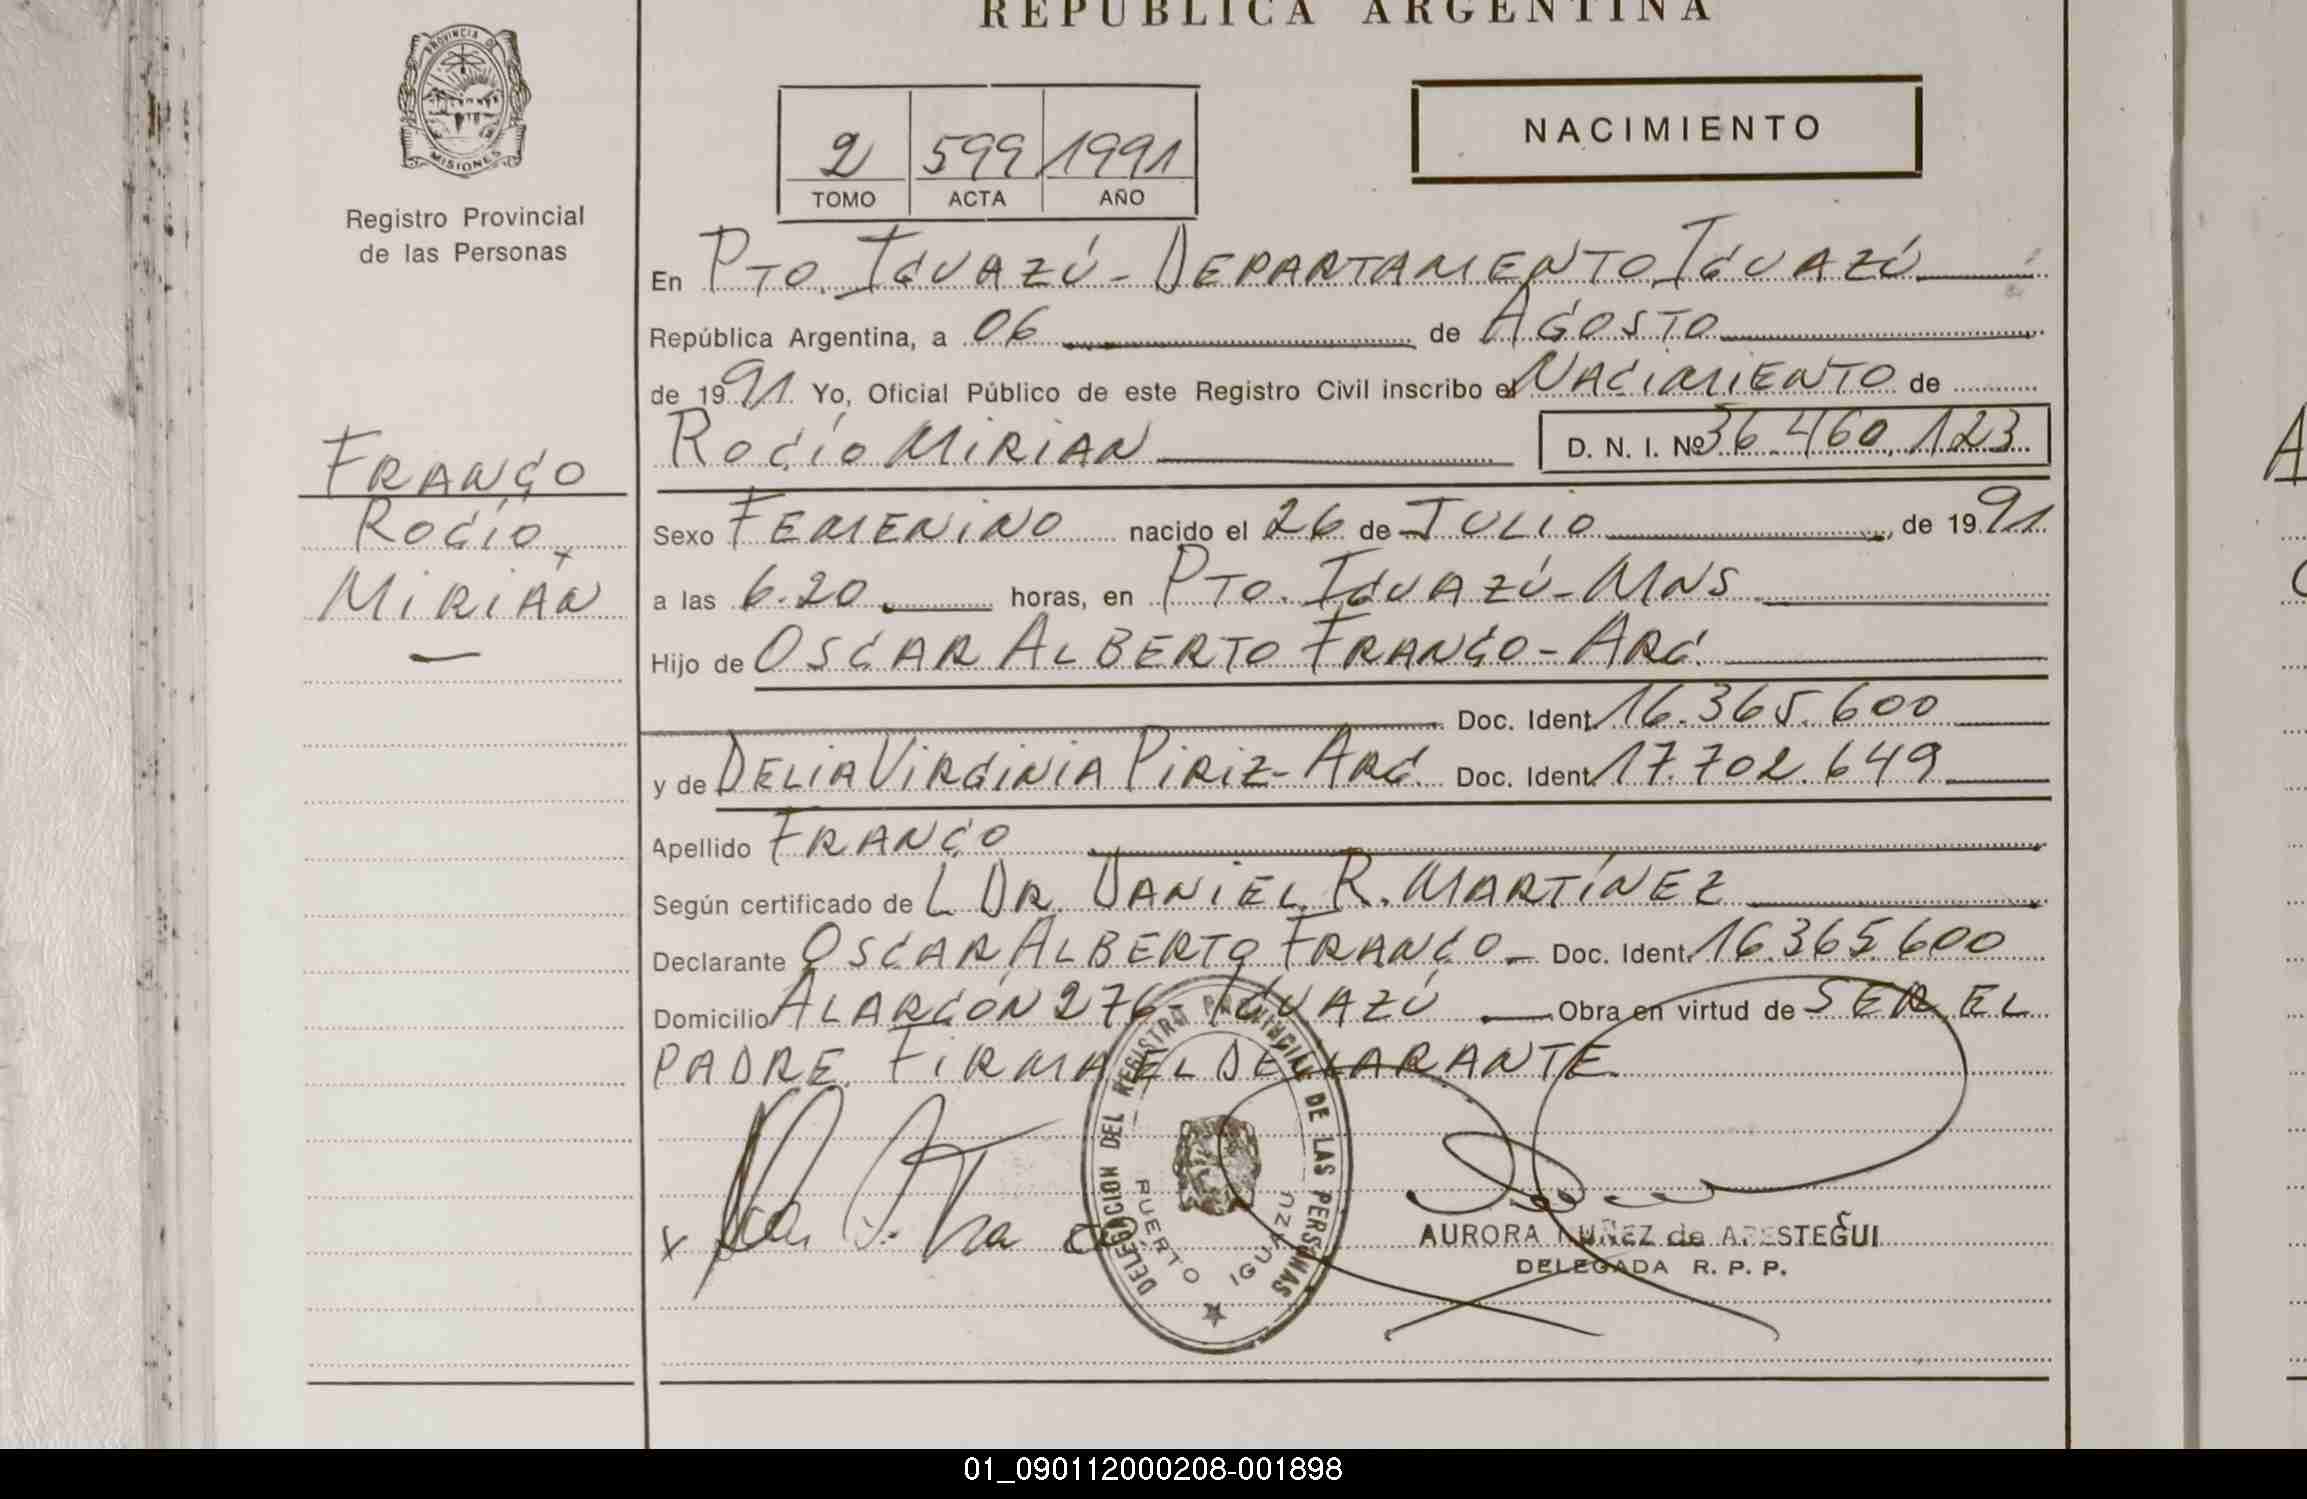 REPUBLICA ARGENTINA
PROVINCIA DE
MISIONES
Registro Provincial
de las Personas
2 599 1991
TOMO ACTA AÑO
NACIMIENTO
En PTO. IGUAZÚ - DEPARTAMENTO IGUAZÚ
República Argentina, a 06 de AGOSTO
de 1991 Yo, Oficial Público de este Registro Civil inscribo el NACIMIENTO de
ROCÍO MIRIAN D. N. I. Nº 36.460.123
FRANCO
ROCÍO
MIRIAN
Sexo FEMENINO nacido el 26 de JULIO de 1991
a las 6.20 horas, en PTO. IGUAZÚ - MNS
Hijo de OSCAR ALBERTO FRANCO - ARG.
Doc. Ident. 16.365.600
y de DELIA VIRGINIA PIRIZ - ARG. Doc. Ident. 17.702.649
Apellido FRANCO
Según certificado de L DR. DANIEL R. MARTÍNEZ
Declarante OSCAR ALBERTO FRANCO - Doc. Ident. 16.365.600
Domicilio ALARCÓN 276 IGUAZÚ Obra en virtud de SER EL
PADRE. FIRMA EL DECLARANTE
DELEGACION DEL REGISTRO PROVINCIAL DE LAS PERSONAS
PUERTO IGUAZU
AURORA NUÑEZ de ARESTEGUI
DELEGADA R. P. P.
01_090112000208-001898